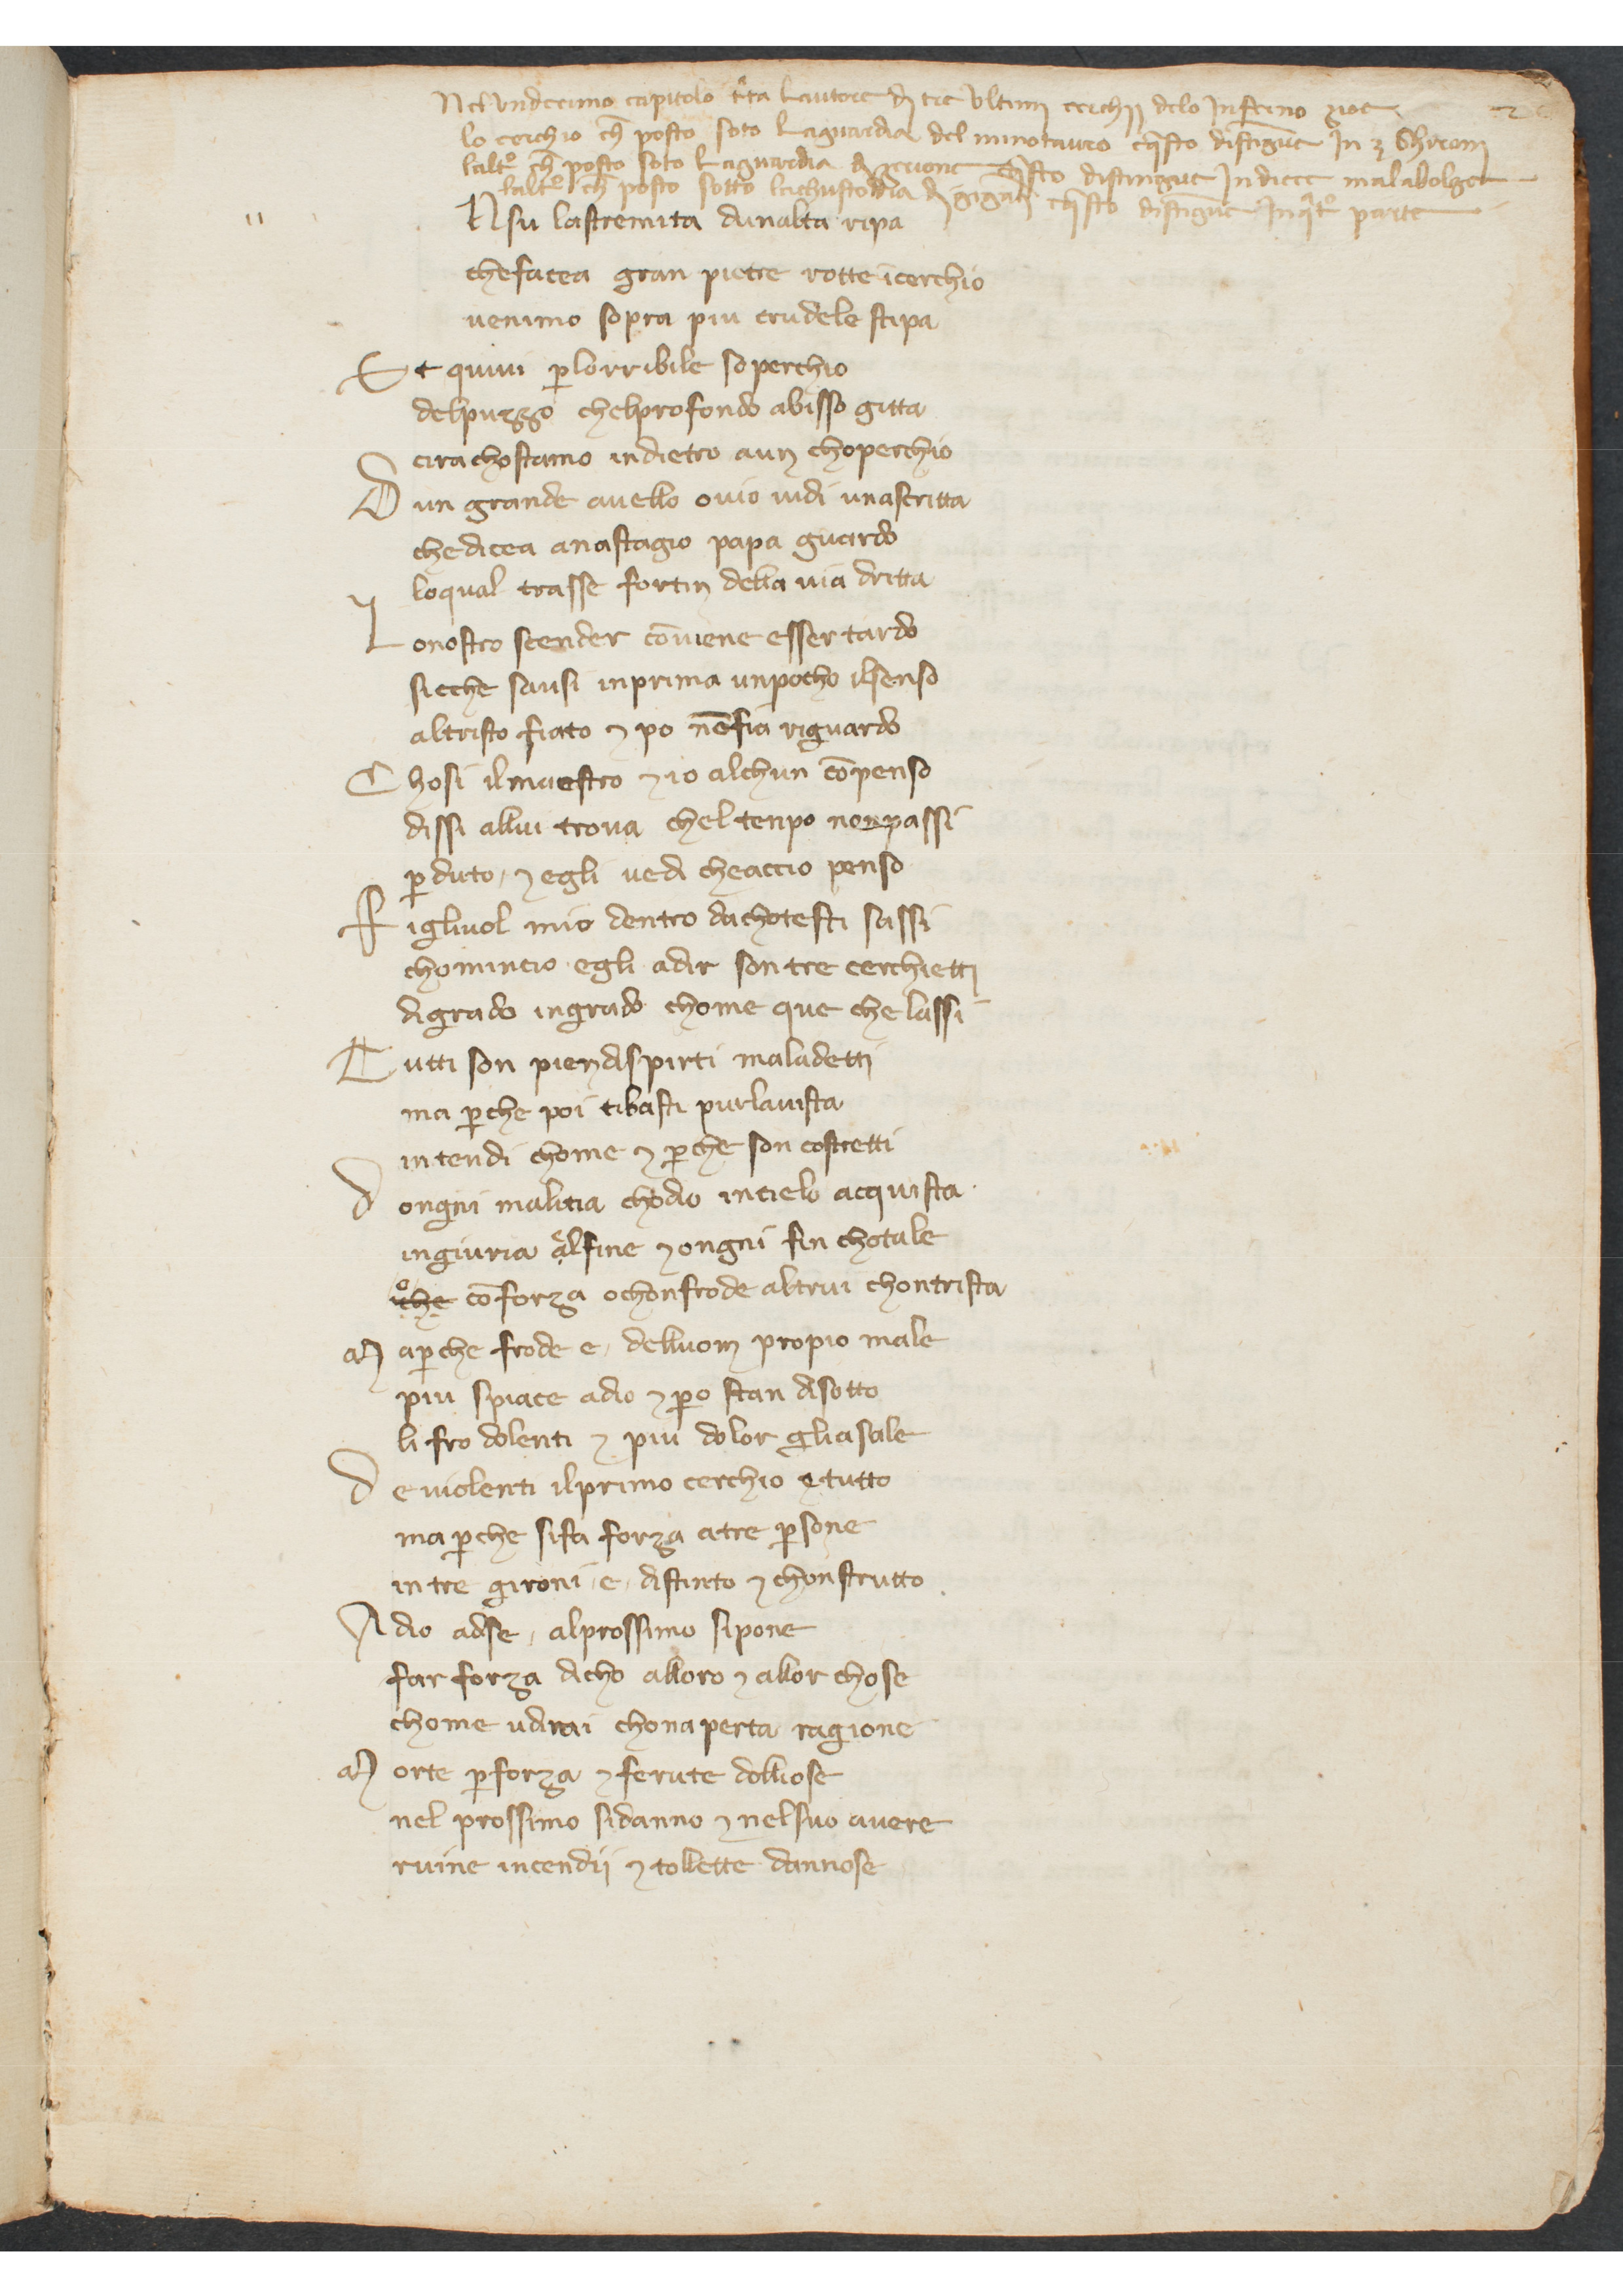 Nel undecimo capitolo t'ta Lautore dj tre ultimj cerchij delo Inferno zioe
lo cerchio ch̄ posto soto Laguardia del minotauro eq̄sto distīgue In 3 Ghironj
laltº ch̄ posto soto Laguardia dj gerione eq̄sto distingue In diece malabolge
laltº ch̄ posto sotto lachustodia dj gigātj eq̄sto distīgue Inq̄tº parte
11
Nsu lastremita dunalta ripa
chefacea gran pietre rotte īcerchio
uenimo sopra piu crudele stipa
Et quiui p̱lorribile soperchio
delpuzzo chelprofondo abisso gitta
ciracchostamo indietro aun choperchio
Dun grande auello ouio uidi unascritta
chedicea anastagio papa guardo
loqual trasse fortin della uia dritta
Lonostro scender cōuiene esser tardo
sicche sausi inprima unpocho ilsenso
altristo fiato ⁊ po nōfia riguardo
Chosi ilmaestro ⁊ io alchun cōpenso
dissi allui troua chel tenpo nonpassi
p̱duto, ⁊ egli uedi cheaccio penso
Figliuol mio dentro dachotesti sassi
chomincio egli adir son tre cerchietti
digrado ingrado chome que che lassi
Tutti son piendispirti maladetti
ma p̱che poi tibasti purlauista
intendi chome ⁊ p̱che son costretti
Dongni malitia chodio incielo acquista
ingiuria alfine ⁊ ongni fin chotale
o cōforza ochonfrode altrui chontrista
Map̱che frode e, delluom propio male
piu spiace adio ⁊ p̱o stan disotto
li frodolenti ⁊ piu dolor gliasale
Deuiolenti ilprimo cerchio e tutto
ma p̱che sifa forza atre p̱sone
in tre gironi, e, distinto ⁊ chonstrutto
Adio adse, alprossimo sipone
far forza dicho alloro ⁊ allor chose
chome udirai chonaperta ragione
Morte p̱forza ⁊ ferute dolliose
nel prossimo sidanno ⁊ nelsuo auere
ruine incendij ⁊ tollette dannose